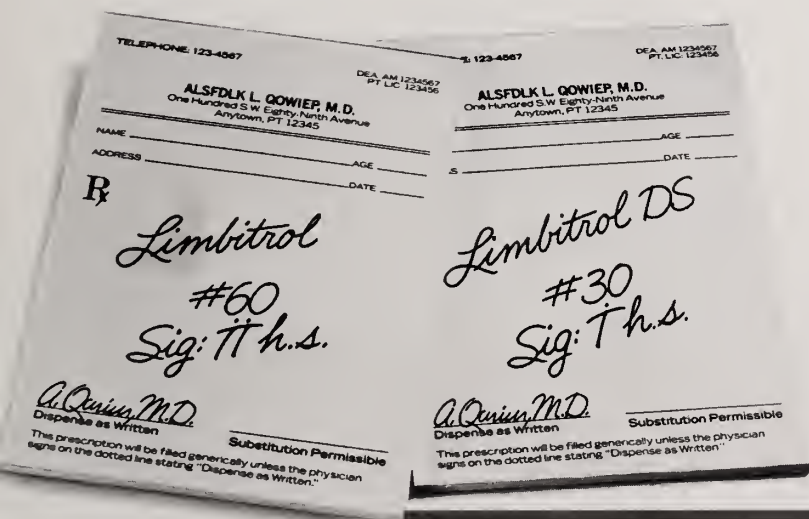 TELEPHONE: 123-4567
DEA. AM 1234567
PT. LIC. 123456
ALSFDLK L. QOWIEP, M.D.
One Hundred S.W. Eighty-Ninth Avenue
Anytown, PT 12345
NAME AGE
ADDRESS DATE
Rx
Limbitrol
#60
Sig: ṪṪ h.s.
A. Qariuz, M.D.
Dispense as Written
Substitution Permissible
This prescription will be filled generically unless the physician
signs on the dotted line stating "Dispense as Written."
E: 123-4567
DEA. AM 1234567
PT. LIC. 123456
ALSFDLK L. QOWIEP, M.D.
One Hundred S.W. Eighty-Ninth Avenue
Anytown, PT 12345
AGE
S DATE
Limbitrol DS
#30
Sig: Ṫ h.s.
A. Qariuz, M.D.
Dispense as Written
Substitution Permissible
This prescription will be filled generically unless the physician
signs on the dotted line stating "Dispense as Written"